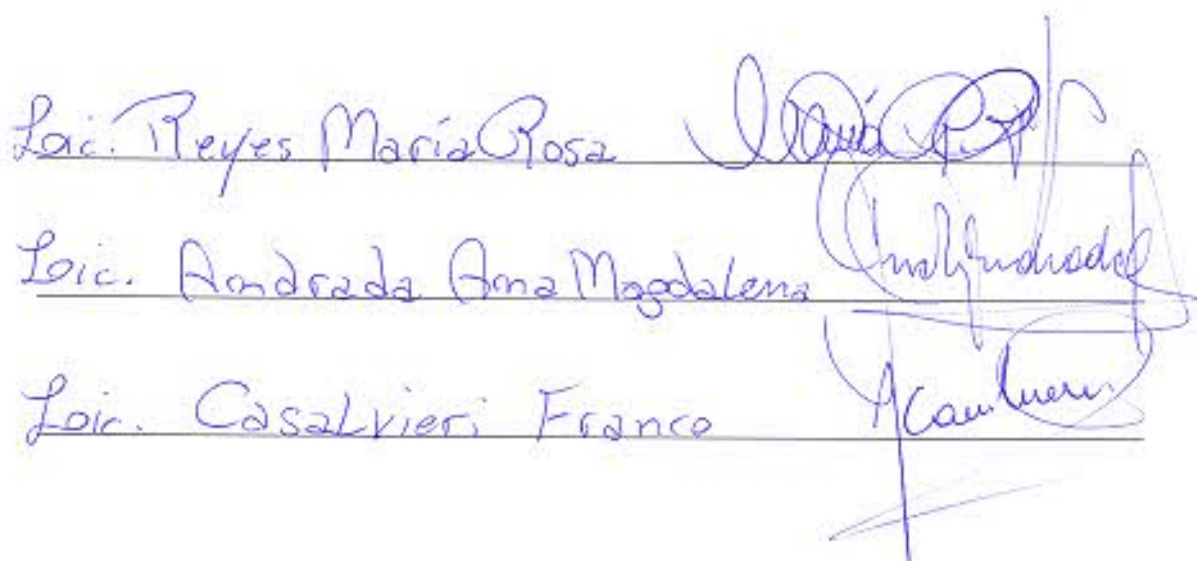 Lic. Reyes María Rosa
Lic. Andrada Ana Magdalena
Lic. Casalvieri Franco